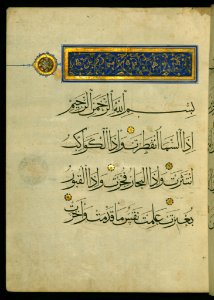 بسم الله الرحمن الرحيم
اذا السماء انفطرت واذا الكواكب
انتثرت واذا البحار فجرت واذا القبور
بعثرت علمت نفس ما قدمت واخرت